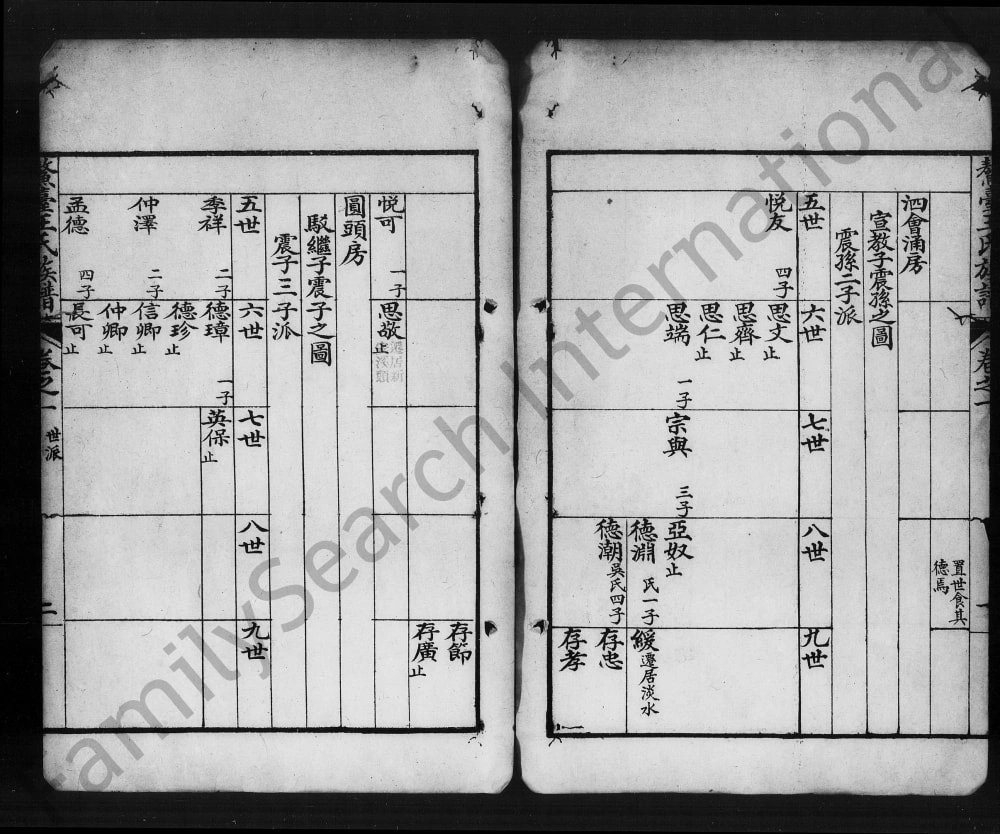 鰲臺王氏族譜
卷之一
置世食其
德焉
泗會涌房
宣教子震孫之圖
震孫二子派
五世
六世
七世
八世
九世
悦友 四子
思文止
思齊止
思仁止
思端 一子
宗與 三子
亞奴止
德淵 氏一子
德潮 吳氏四子
緩 遷居淡水
存忠
存孝
存節
存廣止
悦可 一子
思敬止
遷居新
圓頭房
駁繼子震子之圖
震子三子派
五世
六世
七世
八世
九世
季祥 二子
德璋 一子
英保止
德珍止
仲澤 二子
信卿止
仲卿止
孟德 四子
長可止
鰲臺王氏族譜
卷之一
世派
二
FamilySearch International